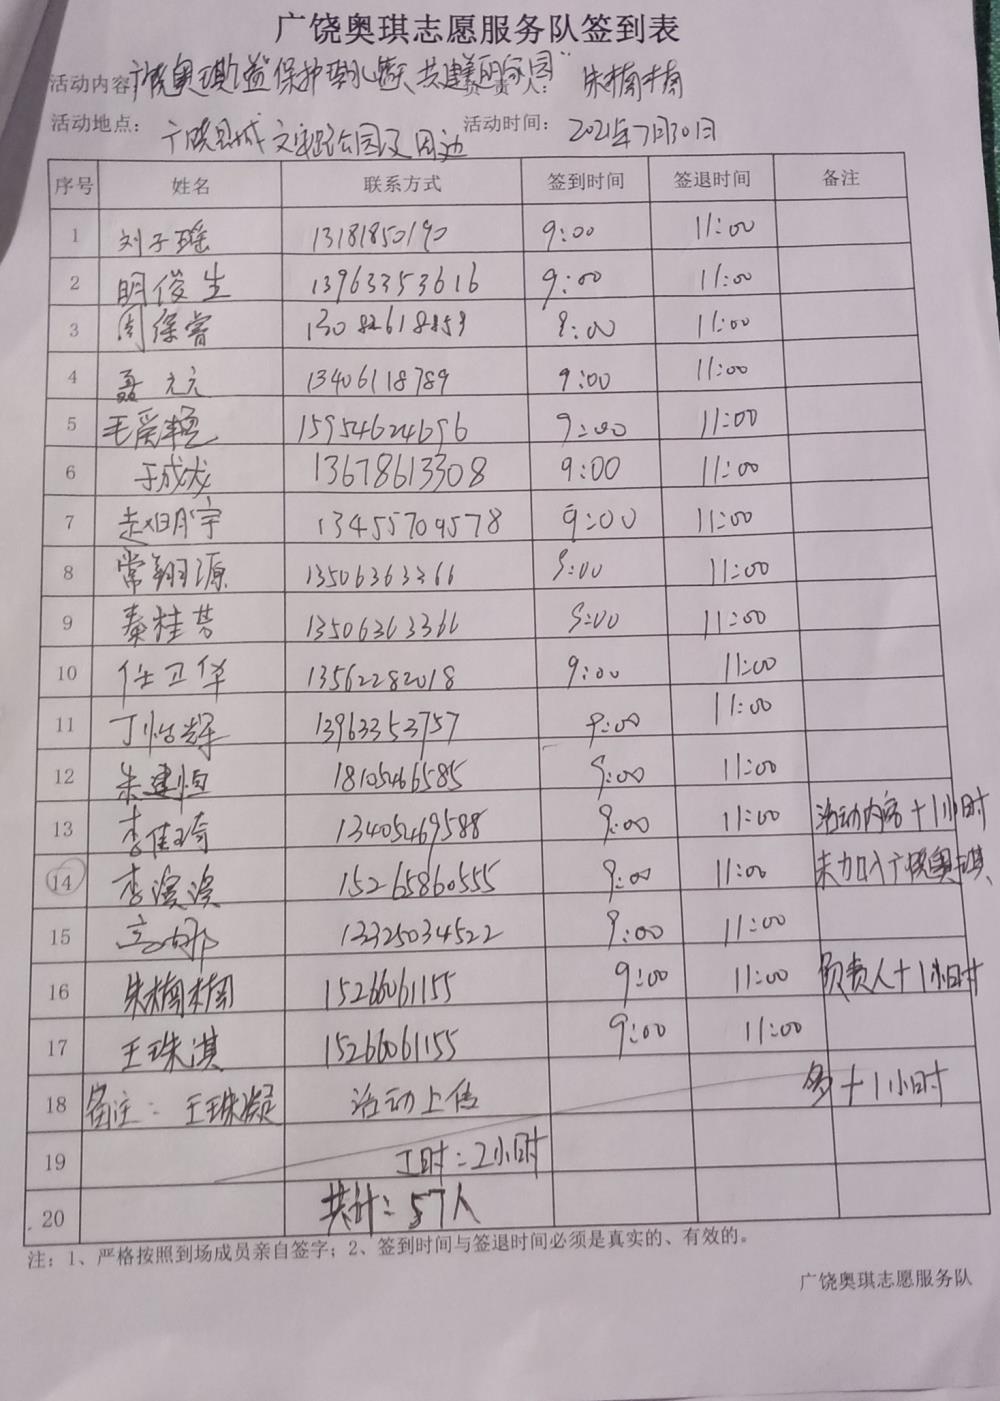 广饶奥琪志愿服务队签到表
活动内容 广饶奥琪公益"保护 共建美丽家园" 负责人： 朱楠楠
活动地点： 广饶县城文安路公园及周边 活动时间： 2021年7月30日
序号 姓名 联系方式 签到时间 签退时间 备注
1 刘子瑶 13181850190 9:00 11:00
2 明俊生 13963353616 9:00 11:00
3 周保睿 13082618859 9:00 11:00
4 聂元元 13406118789 9:00 11:00
5 毛爱艳 15954624696 9:00 11:00
6 于成龙 13678613308 9:00 11:00
7 赵明宇 13455709578 9:00 11:00
8 常翔源 13506363366 9:00 11:00
9 秦桂芳 13506363366 9:00 11:00
10 任卫华 13562282018 9:00 11:00
11 丁怡辉 13963353757 9:00 11:00
12 朱建恒 18105466585 9:00 11:00
13 李佳琦 13405469588 9:00 11:00 活动内容+1小时
14 李滨滨 15265860555 9:00 11:00 未加入广饶奥琪
15 高娜 13325034522 9:00 11:00
16 朱楠楠 15266061155 9:00 11:00 负责人+1小时
17 王珠淇 15266061155 9:00 11:00
18 备注： 王珠凝 活动上传 多+1小时
19 工时：2小时
20 共计：57人
注：1、严格按照到场成员亲自签字；2、签到时间与签退时间必须是真实的、有效的。
广饶奥琪志愿服务队